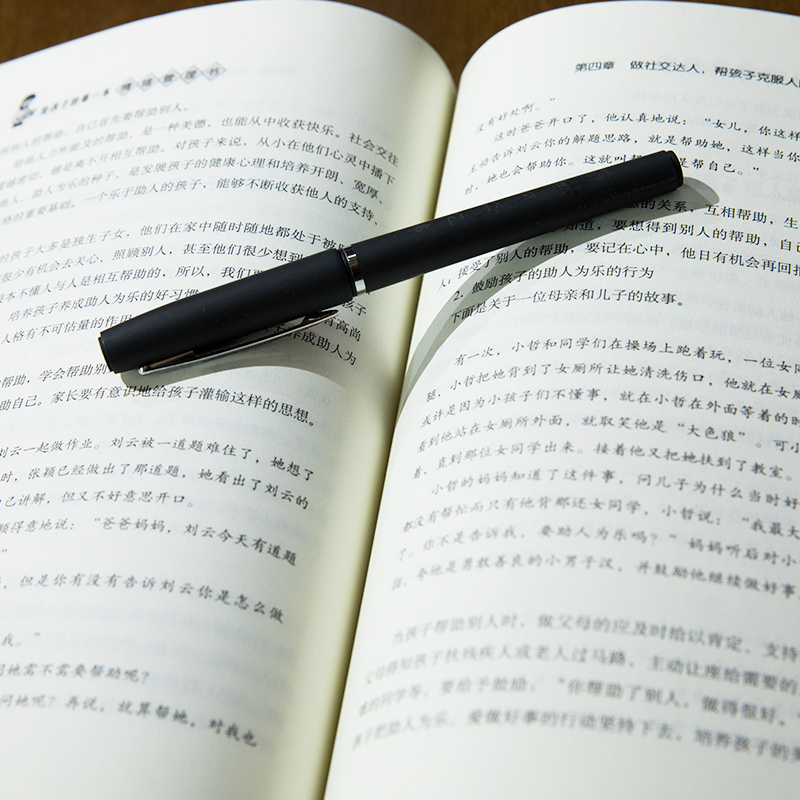 情绪管理书
人的帮助,自己首先要帮助别人。
给他人力所能及的帮助,是一种美德,也能从中收获快乐。社会交往
越是离不开相互帮助。对孩子来说,从小在他们心灵中播下
人、助人为乐的种子,是发展孩子的健康心理和培养开朗、宽厚、
格的重要基础。一个乐于助人的孩子,能够不断收获他人的支持、
的孩子大多是独生子女,他们在家中随时随地都处于被
很少有机会去关心、照顾别人,甚至他们很少想到
本不懂人与人是相互帮助的,所以,我们
培养孩子养成助人为乐的好习惯
人格有不可估量的作用
有高尚
养成助人为
帮助,学会帮助别
助自己。家长要有意识地给孩子灌输这样的思想。
刘云一起做作业。刘云被一道题难住了,她想了
时,张颖已经做出了那道题,她看出了刘云的
己讲解,但又不好意思开口。
颇得意地说:“爸爸妈妈,刘云今天有道题
”
,但是你有没有告诉刘云你是怎么做
我。”
问她需不需要帮助呢?
问她呢?再说,就算帮她,对我也
第四章 做社交达人,帮孩子克服人
没有好处啊。”
这时爸爸开口了,他认真地说:“女儿,你这样
主动告诉刘云你的解题思路,就是帮助她,这样当你
时,她也会帮助你。这就叫帮
是帮自己。”
的关系,互相帮助,生
知道,要想得到别人的帮助,自己
人;接受了别人的帮助,要记在心中,他日有机会再回报
2.鼓励孩子的助人为乐的行为
下面是关于一位母亲和儿子的故事。
有一次,小哲和同学们在操场上跑着玩,一位女同
腿,小哲把她背到了女厕所让她清洗伤口,他就在女厕
或许是因为小孩子们不懂事,就在小哲在外面等着的时
看到他站在女厕所外面,就取笑他是“大色狼”。可小
着,直到那位女同学出来。接着他又把她扶到了教室。
小哲的妈妈知道了这件事,问儿子为什么当时好
都没有帮忙而只有他背那还女同学,小哲说:“我最大
了。你不是告诉我,要助人为乐吗?”妈妈听后对小
指,夸他是勇敢善良的小男子汉,并鼓励他继续做好事
当孩子帮助别人时,做父母的应及时给以肯定、支持
父母得知孩子扶残疾人或老人过马路,主动让座给需要的
的同学等,要给予鼓励:“你帮助了别人,做得很好。
孩子把助人为乐、爱做好事的行动坚持下去,培养孩子的美